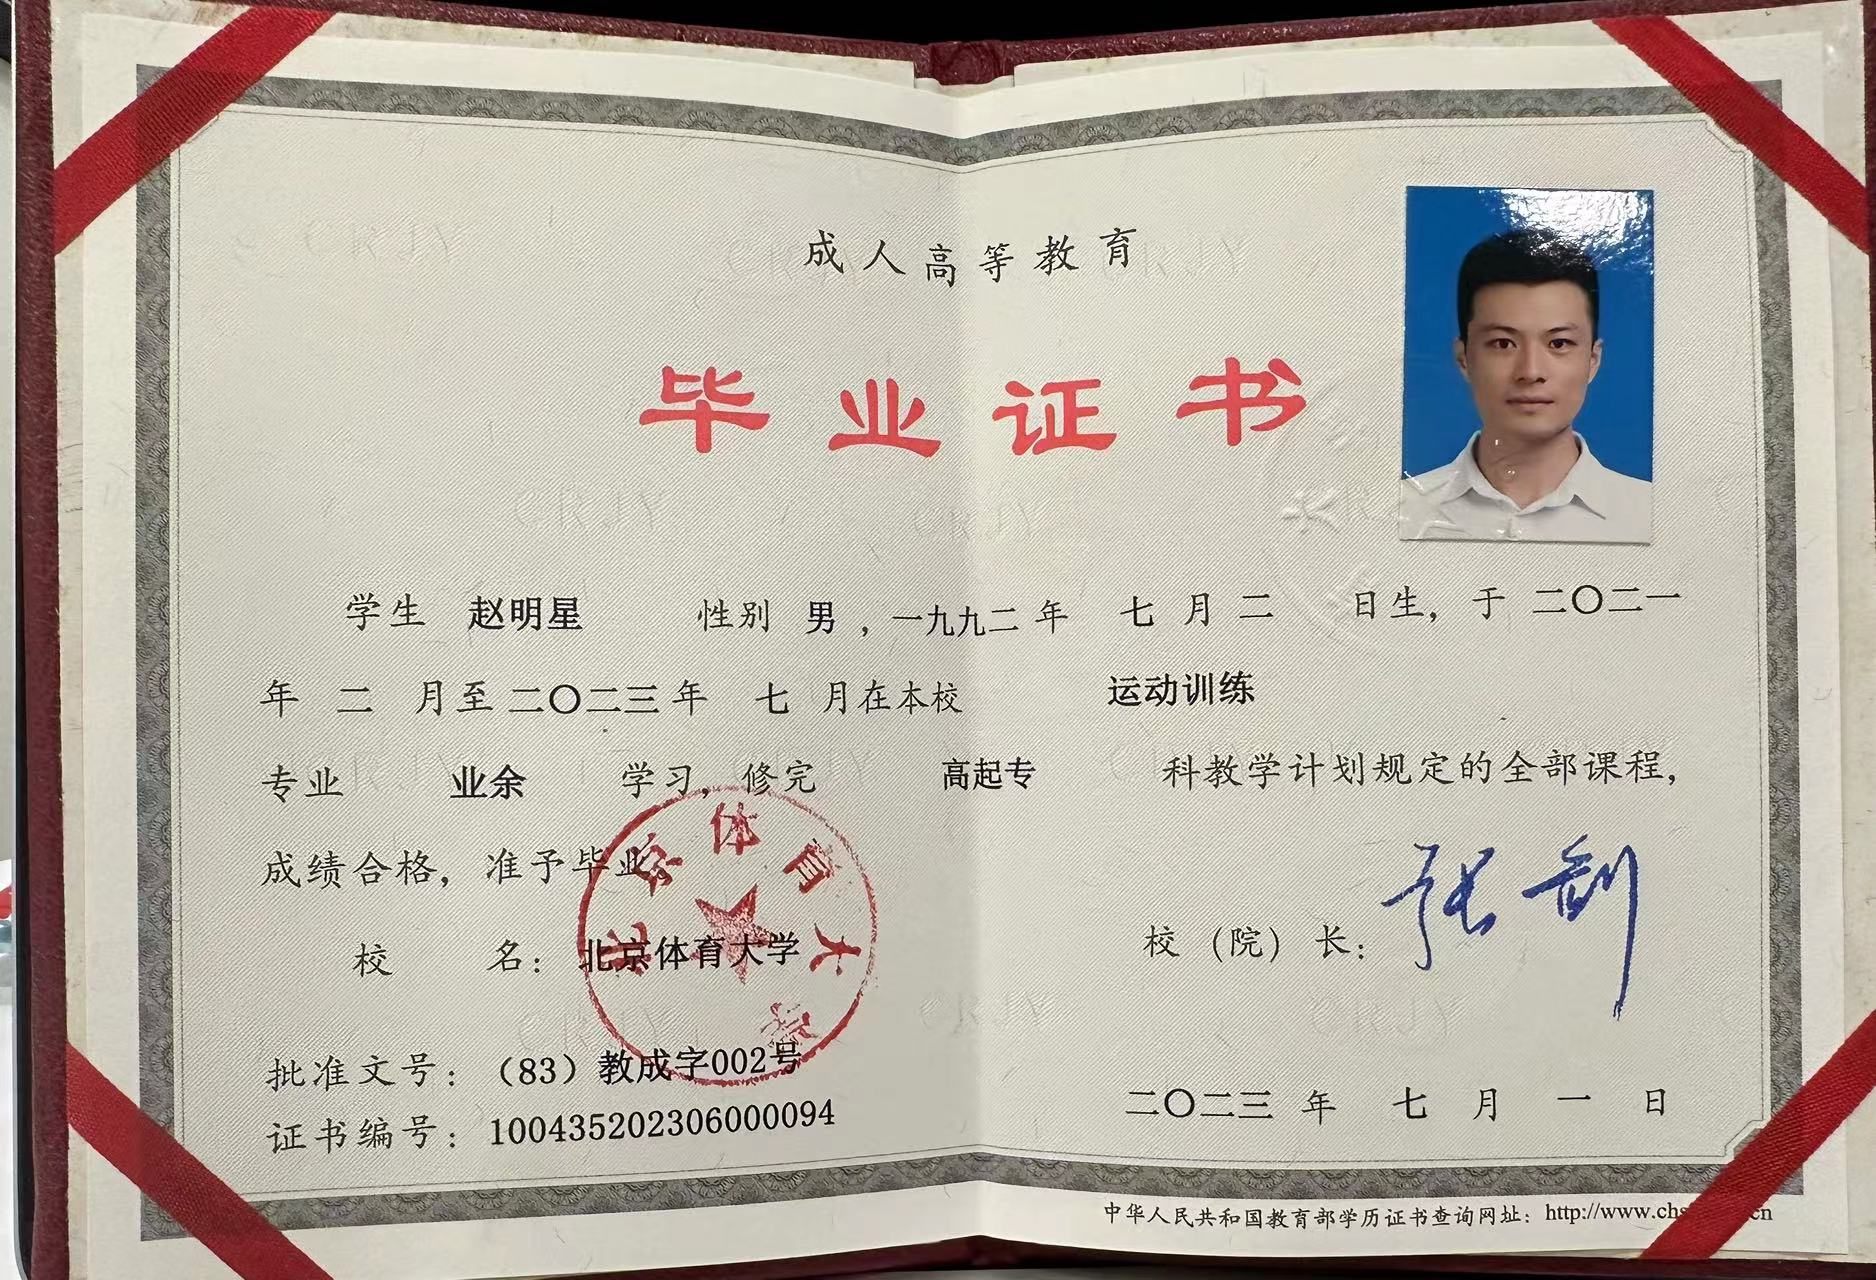 成人高等教育
毕业证书
学生 赵明星 性别 男 ，一九九二 年 七 月 二 日生，于 二〇二一
年 二 月至 二〇二三 年 七 月在本校 运动训练
专业 业余 学习，修完 高起专 科教学计划规定的全部课程，
成绩合格，准予毕业。
北京体育大学
校 名：北京体育大学
校（院）长：张剑
批准文号：（83）教成字002号
证书编号：100435202306000094
二〇二三 年 七 月 一 日
中华人民共和国教育部学历证书查询网址：http://www.chs